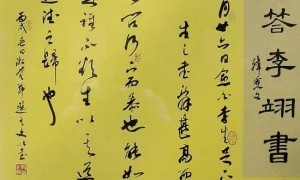 答李翊書
韓愈文
月廿六日愈白李生足下
生之書辭甚高而
問何下而恭也能如
誰不欲告生以其道
道德之歸也